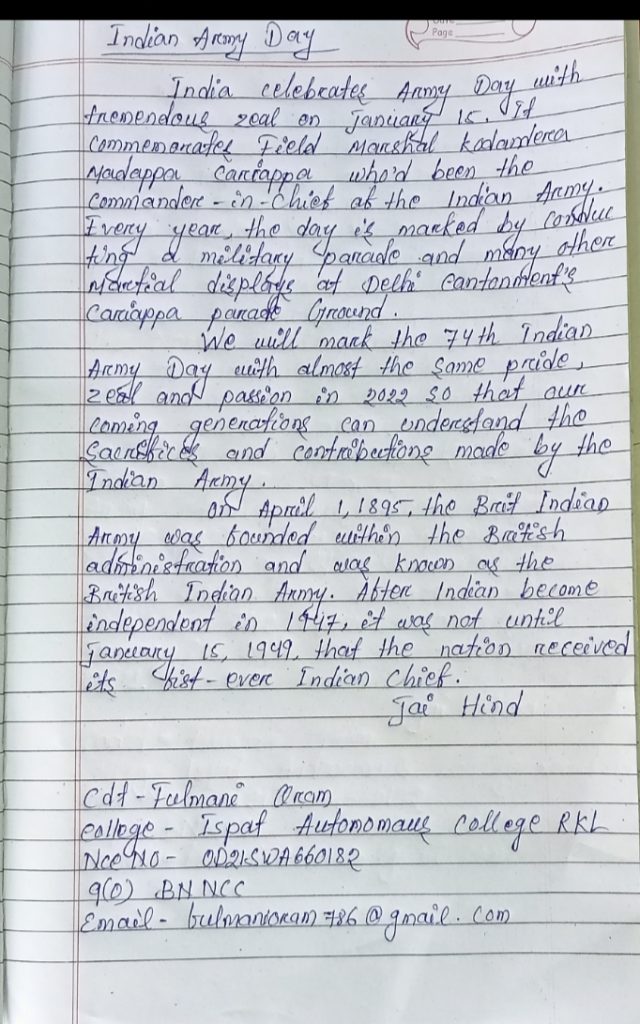 Page
Indian Army Day
India celebrates Army Day with
tremendous zeal on January 15. It
Commemorates Field Marshal Kodandera
Madappa Cariappa who'd been the
Commander-in-Chief of the Indian Army.
Every year, the day is marked by conduc
ting a military parade and many other
Martial displays at Delhi Cantonment's
Cariappa parade Ground.
We will mark the 74th Indian
Army Day with almost the same pride,
zeal and passion in 2022 so that our
coming generations can understand the
Sacrifices and contributions made by the
Indian Army.
On April 1, 1895, the Brit Indian
Army was founded within the British
administration and was known as the
British Indian Army. After Indian become
independent in 1947, it was not until
January 15, 1949, that the nation received
its fist-ever Indian Chief.
Jai Hind
Cdt - Fulmani Oram
College - Ispat Autonomous College RKL
Ncc No - OD21SWA660182
9(O) BN NCC
Email - fulmanioram786@gmail.com